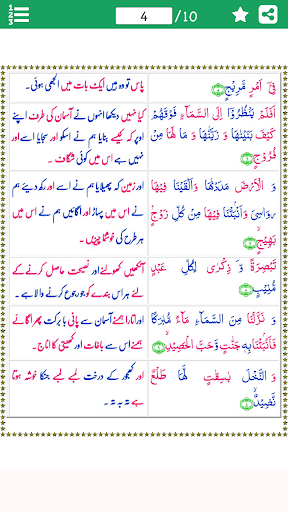 4 /10
فِىْۤ اَمْرٍ مَّرِيْجٍ
پاس تو وہ ہیں ایک بات میں الجھی ہوئی۔
اَفَلَمْ يَنْظُرُوْۤا اِلَى السَّمَآءِ فَوْقَهُمْ
كَيْفَ بَنَيْنٰهَا وَ زَيَّنّٰهَا وَ مَا لَهَا مِنْ
فُرُوْجٍ
کیا نہیں دیکھا انہوں نے آسمان کی طرف اپنے
اوپر کہ کیسے بنایا ہم نے اسکو اور سجایا اسے اور
نہیں ہے اس میں کوئی شگاف ۔
وَ الْاَرْضَ مَدَدْنٰهَا وَاَلْقَيْنَا فِيْهَا
رَوَاسِىَ وَاَنْۢبَتْنَا فِيْهَا مِنْ كُلِّ زَوْجٍۢ
بَهِيْجٍ
اور زمین کہ پھیلایا ہم نے اسے اور رکھ دیئے ہم
نے اس میں پہاڑ اور اگائیں ہم نے اس میں
ہر طرح کی خوشنما چیزیں ۔
تَبْصِرَةً وَّ ذِكْرٰى لِكُلِّ عَبْدٍ
مُّنِيْبٍ
آنکھیں کھولنے اور نصیحت حاصل کرنے کے
لئے ہر اس بندے کو جو رجوع کرنے والا ہے ۔
وَ نَزَّلْنَا مِنَ السَّمَآءِ مَآءً مُّبٰرَكًا
فَاَنْۢبَتْنَا بِهٖ جَنّٰتٍ وَّحَبَّ الْحَصِيْدِ
اور اتارا ہمنے آسمان سے پانی با برکت پھر اگائے
ہمنے اس سے باغات اور کھیتی کا اناج۔
وَ النَّخْلَ بٰسِقٰتٍ لَّهَا طَلْعٌ
نَّضِيْدٌ
اور کھجور کے درخت لمبے لمبے جنکا خوشہ ہوتا
ہے تہ بہ تہ ۔